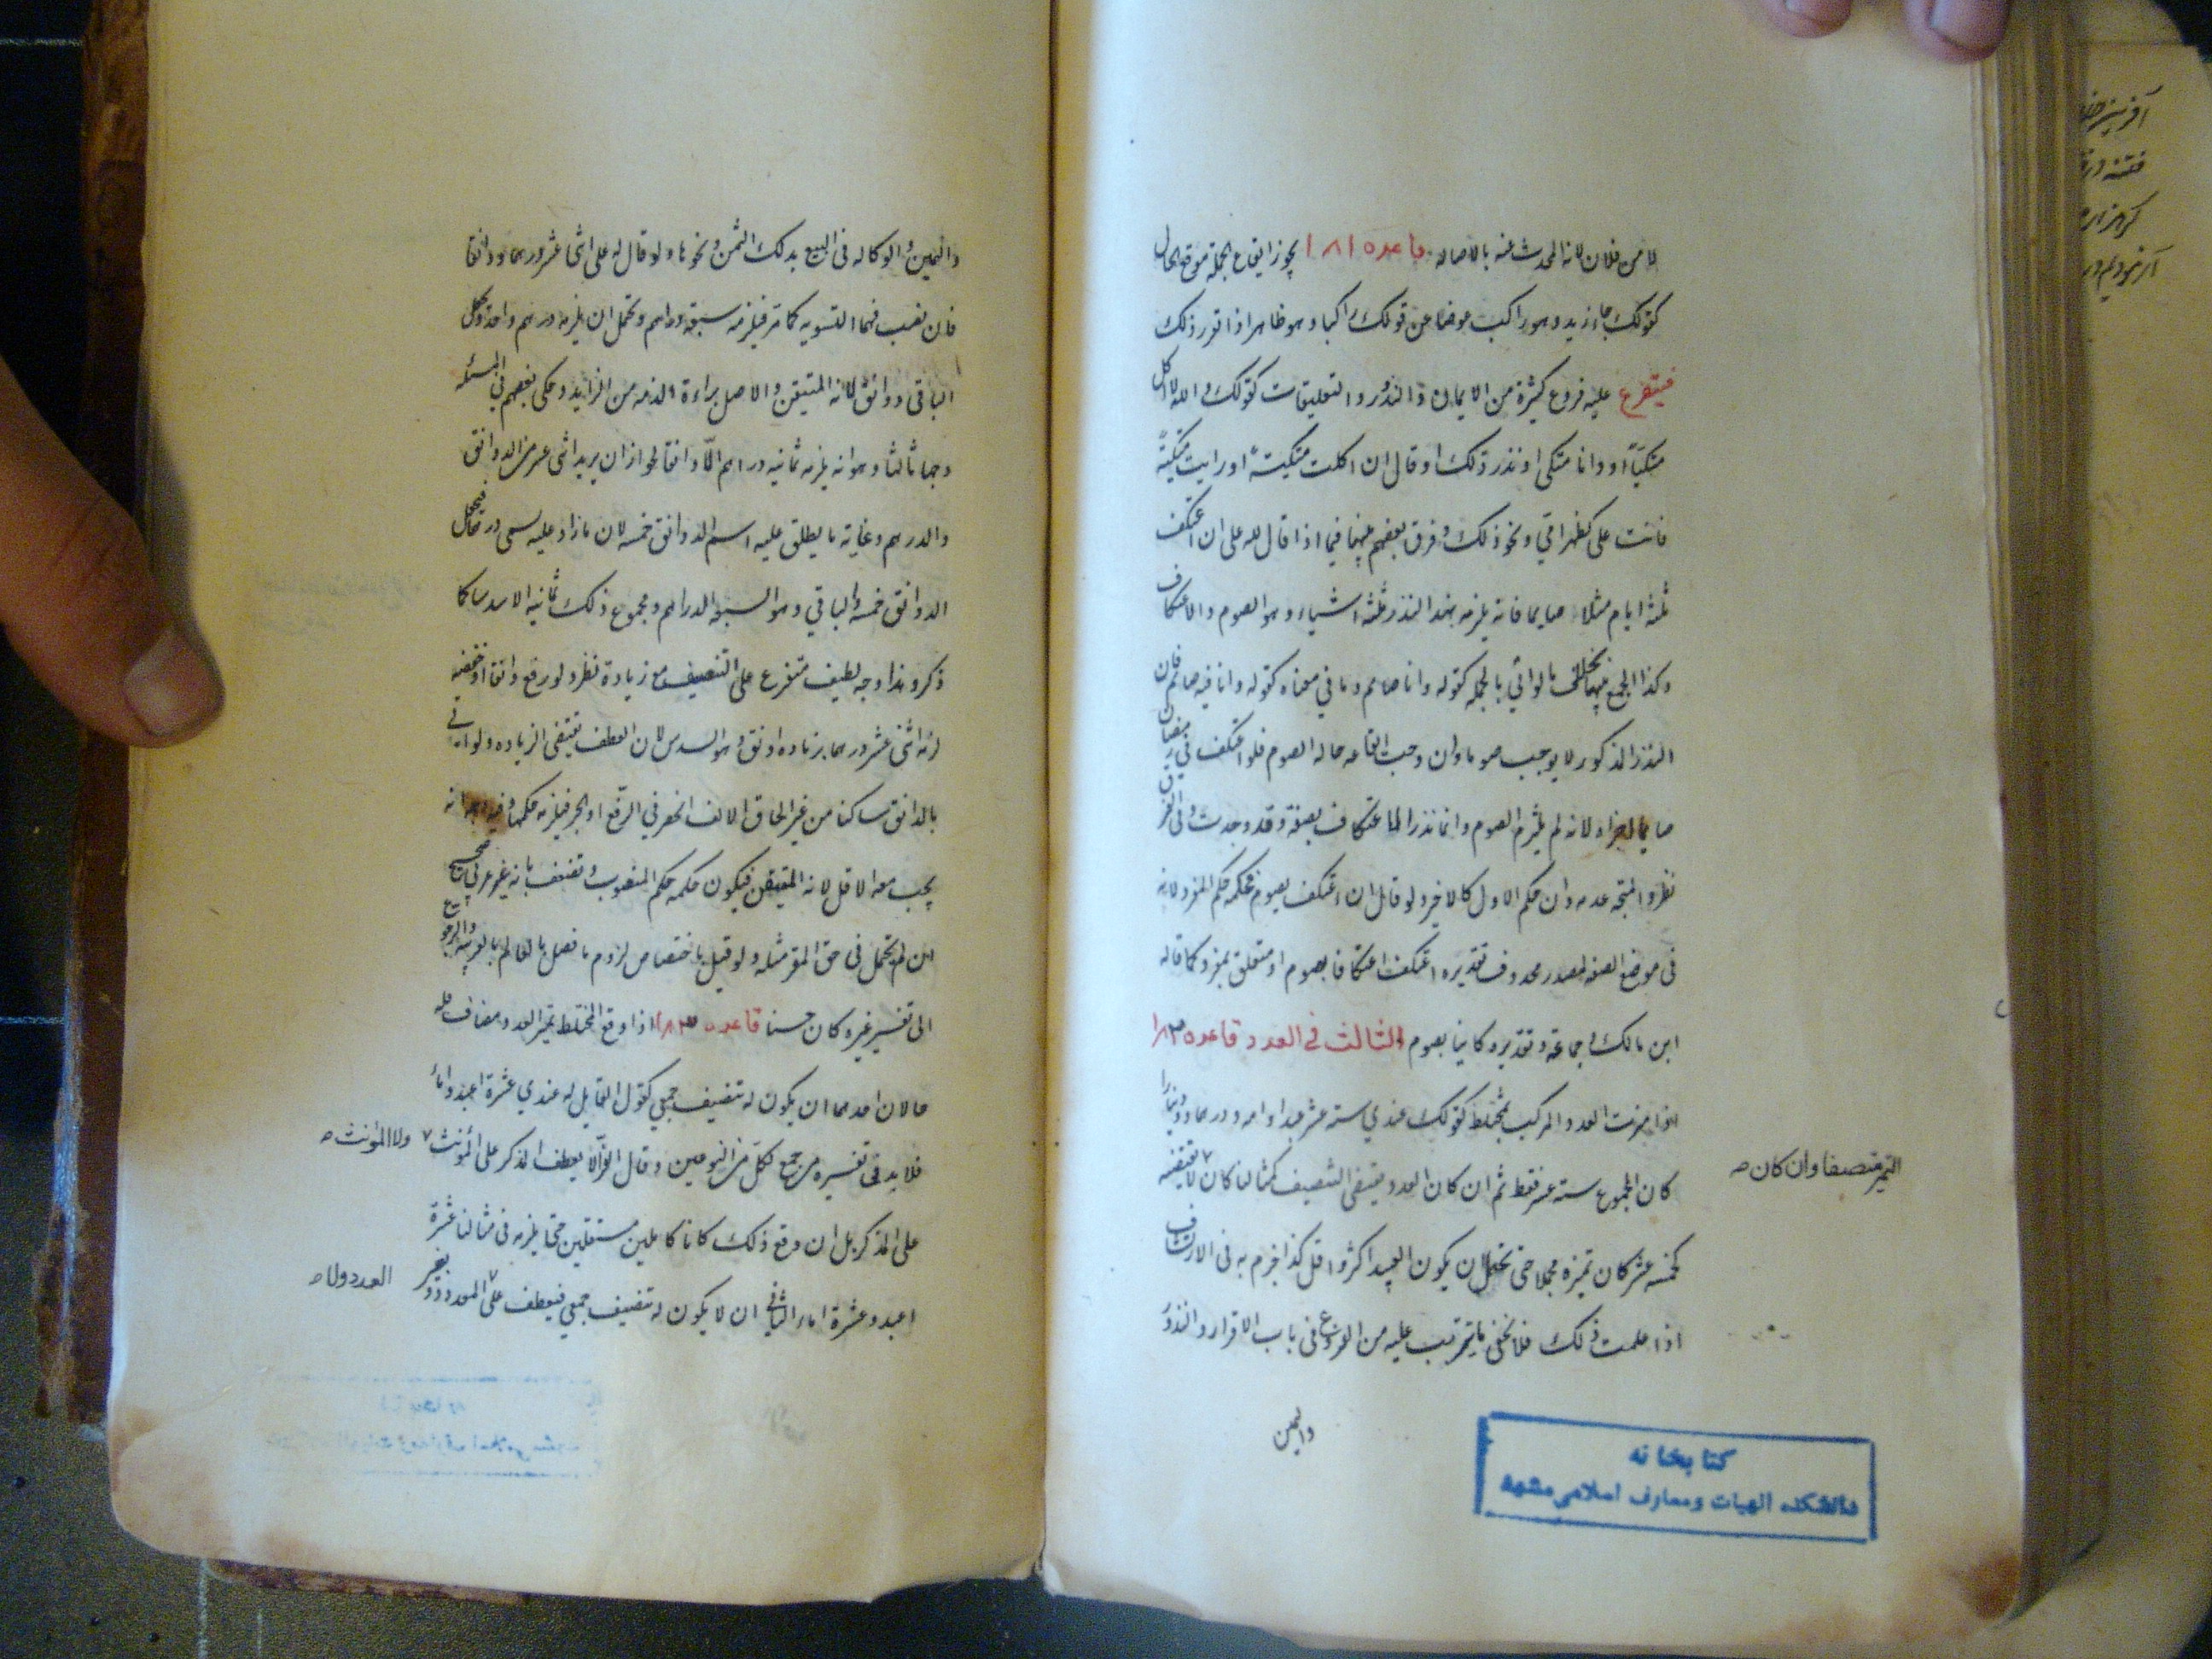 لا من فلان لانه المحدث عنه بالاصاله قاعده ١٨١ يجوز ايقاع الجملة موقع الحال
كقولك جاء زيد وهو راكب عوضا عن قولك راكبا وهو ظاهر اذا تقرر ذلك
فيتفرع عليه فروع كثيرة من الايمان والنذور والتعليقات كقولك والله لا اكل
متكيا او وانا متكى او نذر ذلك او قال ان اكلت متكيتة او رايت متكيتة
فانت على كظهر امي ونحو ذلك وفرق بعضهم بينهما فيما اذا قال لله على ان اعتكف
ثلثة ايام مثلا صايما فانه يلزمه بهذا النذر ثلثة اشياء وهو الصوم والاعتكاف
وكذا الجمع بينهما بخلاف ما لو اتي بالجملة كقوله وانا صايم وما في معناه كقوله وانا فيه صايم فان
النذر المذكور لا يوجب صوما وان وجب ايقاعه حالة الصوم فلو اعتكف في رمضان
صايما اجزاه لانه لم يلتزم الصوم وانما نذر الاعتكاف بصفة وقد وجدت وفي الفرق
نظر والمتجه عدمه وان حكم الاول كالاخير ولو قال ان اعتكف بصوم فحكمه حكم المفرد لانه
في موضع الصفة لمصدر محذوف تقديره اعتكف اعتكافا بصوم او متعلق بمفرد كما قاله
ابن مالك وجماعة وتقديره كاينا بصوم الثالث في العدد قاعده ١٨٢
اذا ميزت العدد المركب بمختلط كقولك عندي ستة عشر عبدا وامه ودرهما ودينارا
كان المجموع ستة عشر فقط ثم ان كان العدد يقتضي التنصيف كمثالنا كان ٧ لا يقتضيه
التمييز منصفا وان كان ص
كخمسة عشر كان تمييزه مجملا حتى يحتمل ان يكون العبيد اكثر واقل كذا جزم به في الارتشاف
اذا علمت ذلك فلا يخفى ما يترتب عليه من الفروع في باب الاقرار والنذور
واليمين
كتابخانه
دانشكده الهيات ومعارف اسلامى مشهد
واليمين والوكاله في البيع بذلك الثمن ونحوها ولو قال له على اثنا عشر درهما ودانقا
فان نصب فهما التسويه كما مر فيلزمه سبعة دراهم ويحتمل ان يلزمه درهم واحد وكل
الباقي دوانق لانه المتيقن والاصل براءة الذمه من الزايد وحكى بعضهم في المسئلة
وجها ثالثا وهو انه يلزمه ثمانيه دراهم الا دانقا لجواز ان يريد اثني عشر من الدوانق
والدرهم وغاية ما يطلق عليه اسم الدوانق خمسة لان ما زاد عليه يسمى درهما فيجعل
الدوانق خمسة والباقي وهو السبعة الدراهم ومجموع ذلك ثمانية الا سدسا كما
ذكر وهذا وجه لطيف متفرع على التنصيف مع زيادة نظر ولو رفع دانقا او خفضه
لزمه اثني عشر درهما بزيادة دانق وهو السدس لان العطف يقتضي الزيادة ولو اتى
بالدانق ساكنا من غير الحاق الالف انحصر في الرفع او الجر فيلزمه حكمهما وفيه وجه انه
يجب معه الاقل لانه المتيقن فيكون حكمه حكم المنصوب ويضعف بانه غير عربي صحيح
اين لم يحتمل في حق المقر مثله ولو قيل باختصاص لزوم ما فصل بالعالم بالعربية والرجوع
الى تفسير غيره كان حسنا قاعده ١٨٣ اذا وقع المختلط تمييز العدد مضاف فله
حالان احدهما ان يكون له تنصيف جمعي كقول القايل له عندي عشرة اعبد واماء
فلا بد في تفسيره من جمع لكل من النوعين وقال الفرآ لا يعطف المذكر على المؤنث ٧ ولا المؤنث ص
على المذكر بل ان وقع ذلك كانا كاملين مستقلين حتى يلزمه في مثالنا عشرة
اعبد وعشرة اماء الثاني ان لا يكون له تنصيف جمعي فيعطف على ٧ المعدود دون
العدد ولا ص